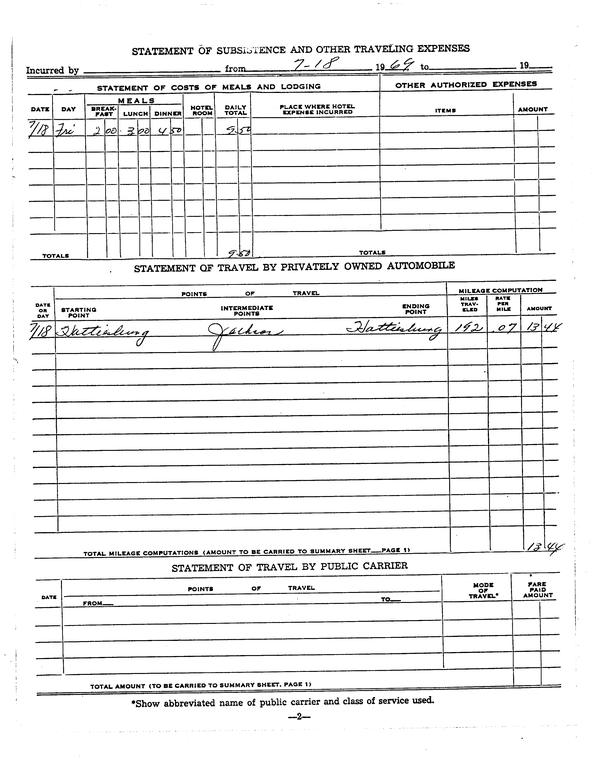 STATEMENT OF SUBSISTENCE AND OTHER TRAVELING EXPENSES
Incurred by from 7-18 1969 to 19
STATEMENT OF COSTS OF MEALS AND LODGING OTHER AUTHORIZED EXPENSES
DATE DAY MEALS BREAK-FAST LUNCH DINNER HOTEL ROOM DAILY TOTAL PLACE WHERE HOTEL EXPENSE INCURRED ITEMS AMOUNT
7/18 Fri 2 00 3 00 4 50 9.50
TOTALS 9.50 TOTALS
STATEMENT OF TRAVEL BY PRIVATELY OWNED AUTOMOBILE
POINTS OF TRAVEL MILEAGE COMPUTATION
DATE OR DAY STARTING POINT INTERMEDIATE POINTS ENDING POINT MILES TRAV-ELED RATE PER MILE AMOUNT
7/18 Hattiesburg Jackson Hattiesburg 192 .07 13 44
TOTAL MILEAGE COMPUTATIONS (AMOUNT TO BE CARRIED TO SUMMARY SHEET PAGE 1) 13.44
STATEMENT OF TRAVEL BY PUBLIC CARRIER
DATE POINTS OF TRAVEL MODE OF TRAVEL* FARE PAID AMOUNT
FROM TO
TOTAL AMOUNT (TO BE CARRIED TO SUMMARY SHEET, PAGE 1)
*Show abbreviated name of public carrier and class of service used.
—2—